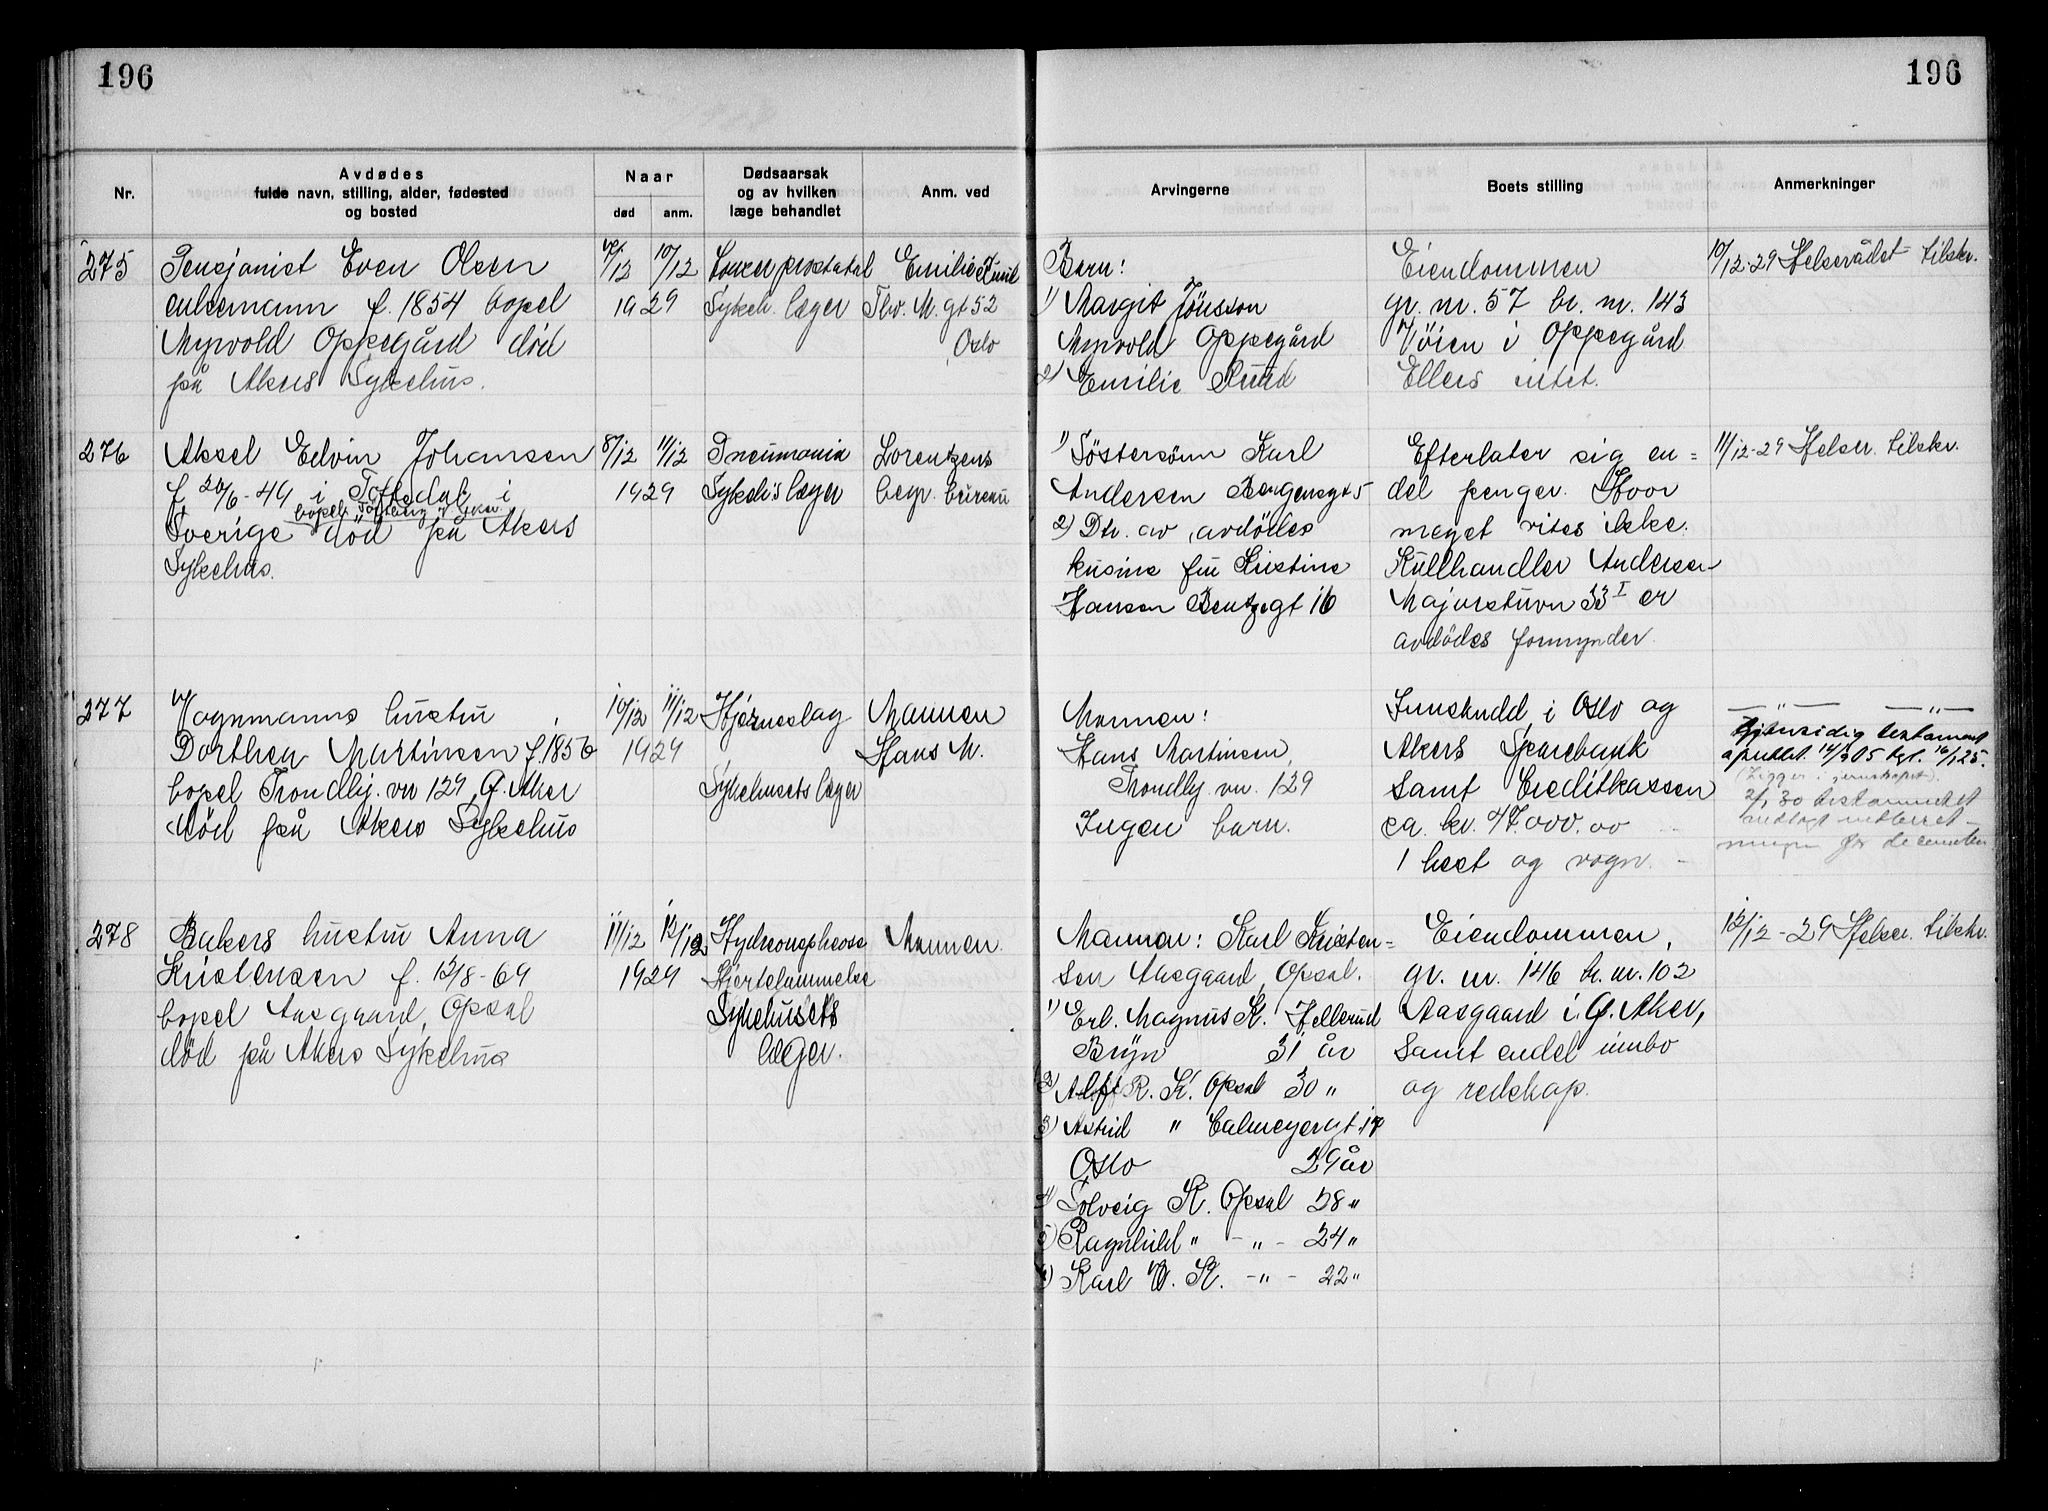 196
196
Nr.
Avdødes
fulde navn, stilling, alder, fødested
og bosted
Naar
død
anm.
Dødsaarsak
og av hvilken
læge behandlet
Anm. ved
Arvingerne
Boets stilling
Anmerkninger
275
Pensjonist Even Olsen
enkemann f. 1854 bopel
Myrvold Oppegård død
på Akers Sykehus.
/12 10/12
1929
prostatal
Sykeh. læger
Emilie
Thv. M. gt 52
Oslo
Barn:
1) Margit Jönsson
Myrvold Oppegård
2) Emilie Ruud
Eiendommen
gr. nr. 57 br. nr. 143
i Oppegård
Ellers intet.
10/12-29 Helserådet tilskr.
276
Aksel Edvin Johansen
f. 20/6-49 i Tossedal i
bopel Aker
Sverige död på Akers
Sykehus.
8/12 11/12
1929
Pneumonia
Sykeh's læger
Lorentzens
begr. bureau
1) Söstersönn Karl
Andersen
2) Dtr. av avdödes
kusine fru Kristine
Hansen Bentsegt 16
Efterlater sig en=
del penger. Hvor
meget vites ikke.
Kullhandler Andersen
Majorstuvn 33 I er
avdödes formynder.
11/12-29 Helser. tilskr.
277
Vognmanns hustru
Dorthea Martinsen f. 1856
bopel Trondhj. vn 129, Ø. Aker
död på Akers Sykehus
10/12 11/12
1929
Hjerneslag
Sykehusets læger
Mannen
Hans M.
Mannen:
Hans Martinsen,
Trondhj. vn. 129
Ingen barn.
Innskudd i Oslo og
Akers Sparebank
samt Creditkassen
ca. kr. 47.000.00
1 hest og vogn.
—„— —„—
Gjensidig testament
oprettet 14/ 05 tgl. 16/1 25.
(Ligger i jernskapet).
2/1 30 testamentet
for decemeter
278
Bakers hustru Anna
Kristensen f. 12/8-69
bopel Aasgaard, Opsal
död på Akers Sykehus
11/12 12/12
1929
Hydronephrose
Hjertelammelse
Sykehusets
læger.
Mannen.
Mannen: Karl Kristen=
sen Aasgaard, Opsal.
1) Erl. Magnus K. Hellerud
Bryn 31 år
2) Alf R. K. Opsal 30 „
3) Astrid „ Calmeyergt. 17
Oslo 29 år
4) Solveig K. Opsal 28 „
5) Ragnhild „ -„- 24 „
6) Karl O. K. -„- 22 „
Eiendommen,
gr. nr. 146 br. nr. 102
Aasgaard i Ø. Aker,
samt endel innbo
og redskap.
12/12-29 Helser. tilskr.